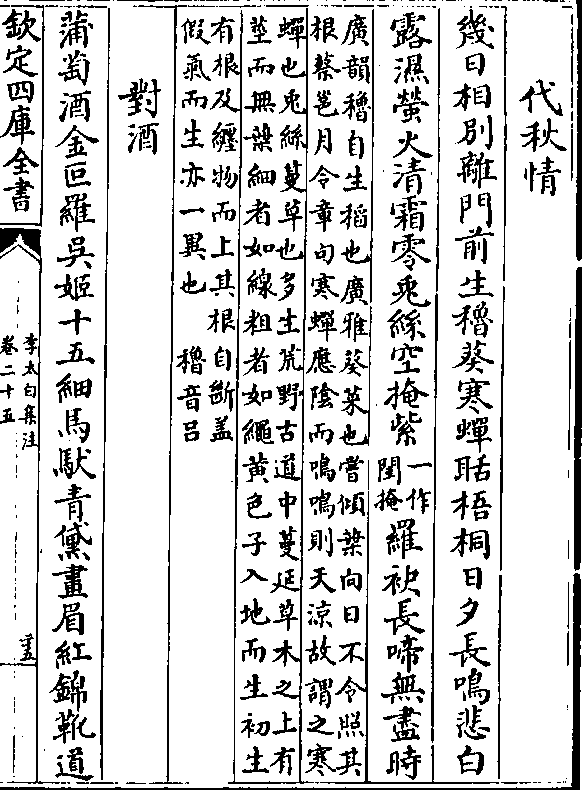 代秋情
幾日相別離門前生穭葵寒蟬聒梧桐日夕長鳴悲白
露濕螢火清霜零兎絲空掩紫一作閨掩羅袂長啼無盡時
廣韻穭自生稻也廣雅葵菜也嘗傾葉向日不令照其
根蔡邕月令章句寒蟬應陰而鳴鳴則天涼故謂之寒
蟬也兎絲蔓草也多生荒野古道中蔓延草木之上有
莖而無葉細者如線粗者如繩黃色子入地而生初生
有根及纏物而上其根自斷盖
假氣而生亦一異也 穭音吕
對酒
蒲萄酒金叵羅吳姬十五細馬䭾青黛畫眉紅錦靴道
欽定四庫全書
李太白集注
卷二十五